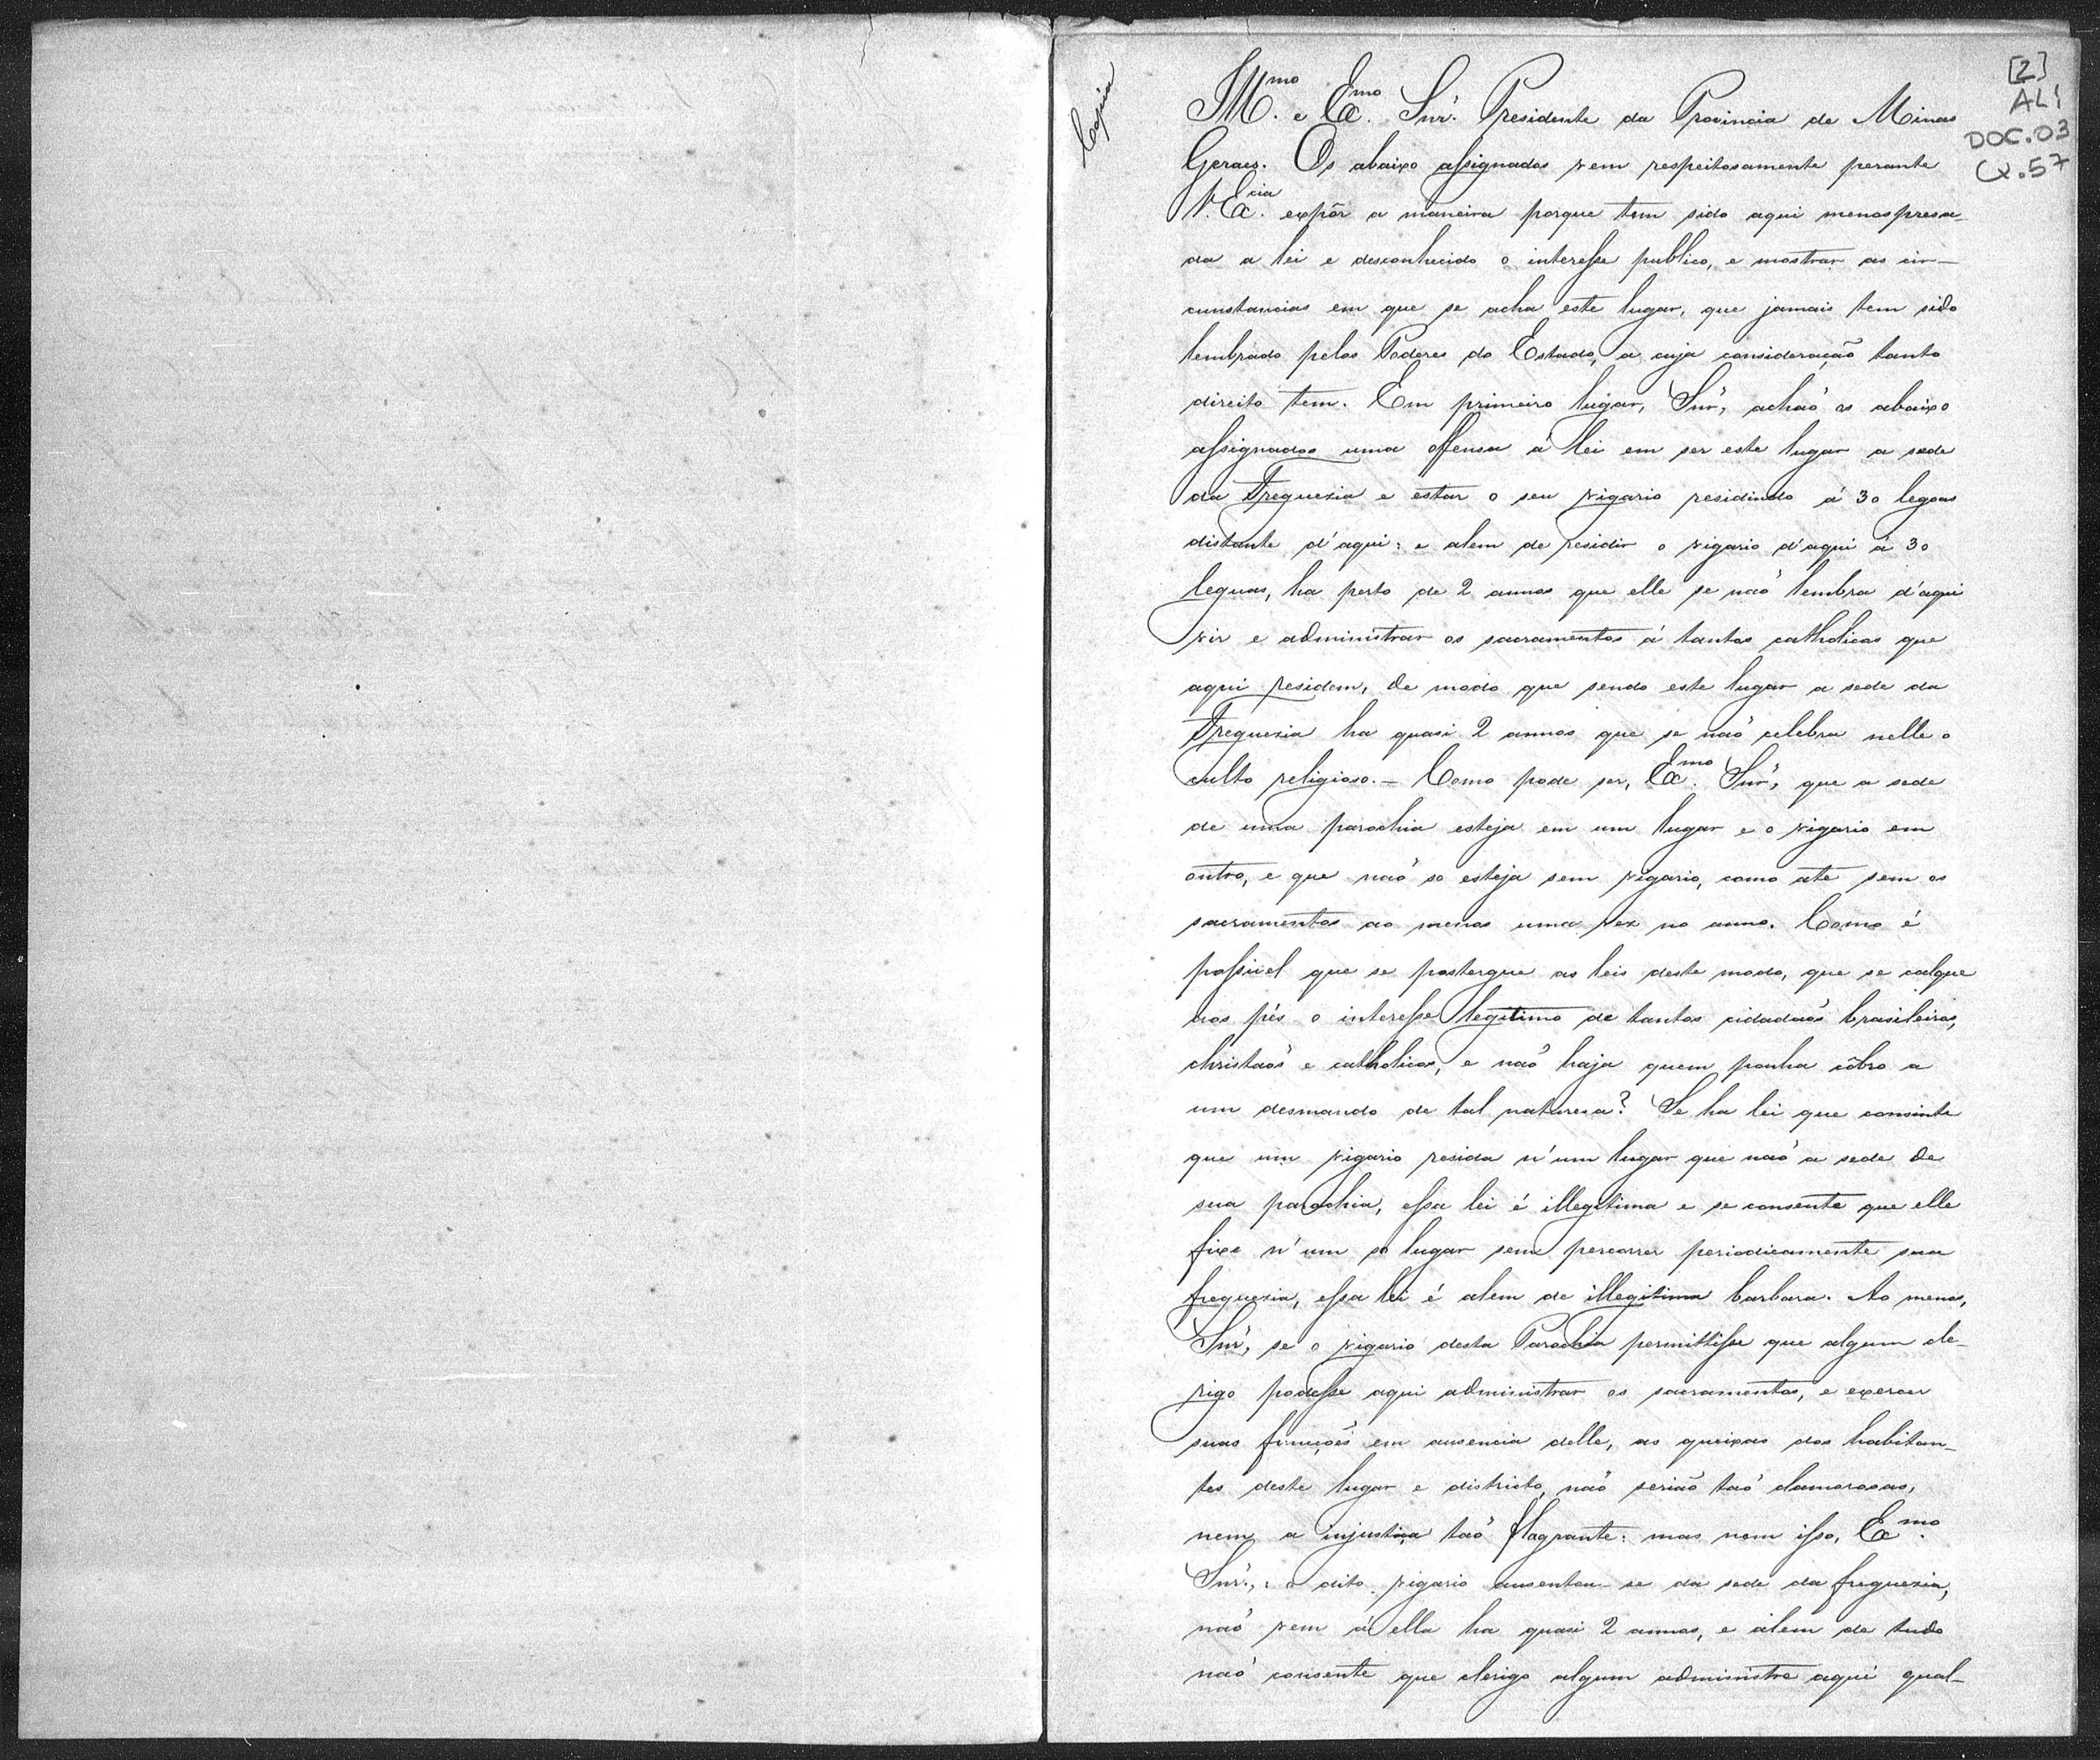 Copia
[2]
AL1
DOC.03
CX.57
Illmo. e Exmo. Snr. Presidente da Provincia de Minas
Geraes. Os abaixo assignados vem respeitosamente perante
V. Excia. expôr a maneira porque tem sido aqui menospresa-
da a lei e desconhecido o interesse publico, e mostrar as cir-
cunstancias em que se acha este lugar, que jamais tem sido
lembrado pelos Poderes do Estado, a cuja consideração tanto
direito tem. Em primeiro lugar, Snr., achaõ os abaixo
assignados uma offensa á lei em ser este lugar a sede
da Freguezia e estar o seu vigario residindo á 30 legoas
distante d'aqui: e alem de residir o vigario d'aqui á 30
leguas, ha perto de 2 annos que elle se naõ lembra d'aqui
vir e administrar os sacramentos á tantos catholicos que
aqui residem, de modo que sendo este lugar a sede da
Freguezia ha quasi 2 annos que se naõ celebra nelle o
culto religioso. - Como pode ser, Exmo. Snr., que a sede
de uma parochia esteja em um lugar e o vigario em
outro, e que naõ so esteja sem vigario, como ate sem os
sacramentos ao menos uma vez no anno. Como é
possivel que se postergue as leis deste modo, que se calque
aos pés o interesse legitimo de tantos cidadaõs brasileiros,
christaõs e catholicos, e naõ haja quem ponha côbro a
um desmando de tal natureza? Se ha lei que consinte
que um vigario resida n'um lugar que naõ a sede de
sua parochia, essa lei é illegitima e se consente que elle
fixe n'um so lugar sem percorrer periodicamente sua
freguezia, essa lei é alem de illegitima barbara. Ao menos,
Snr., se o vigario desta Parochia permittisse que algum cle-
rigo podesse aqui administrar os sacramentos, e exercer
suas funcçoẽs em ausencia delle, as queixas dos habitan-
tes deste lugar e districto, naõ seriaõ taõ clamorosas,
nem a injustiça taõ flagrante: mas nem isso, Exmo.
Snr.,: o dito vigario ausentou-se da sede da freguezia,
naõ vem á ella ha quasi 2 annos, e alem de tudo
naõ consente que clerigo algum administre aqui qual-